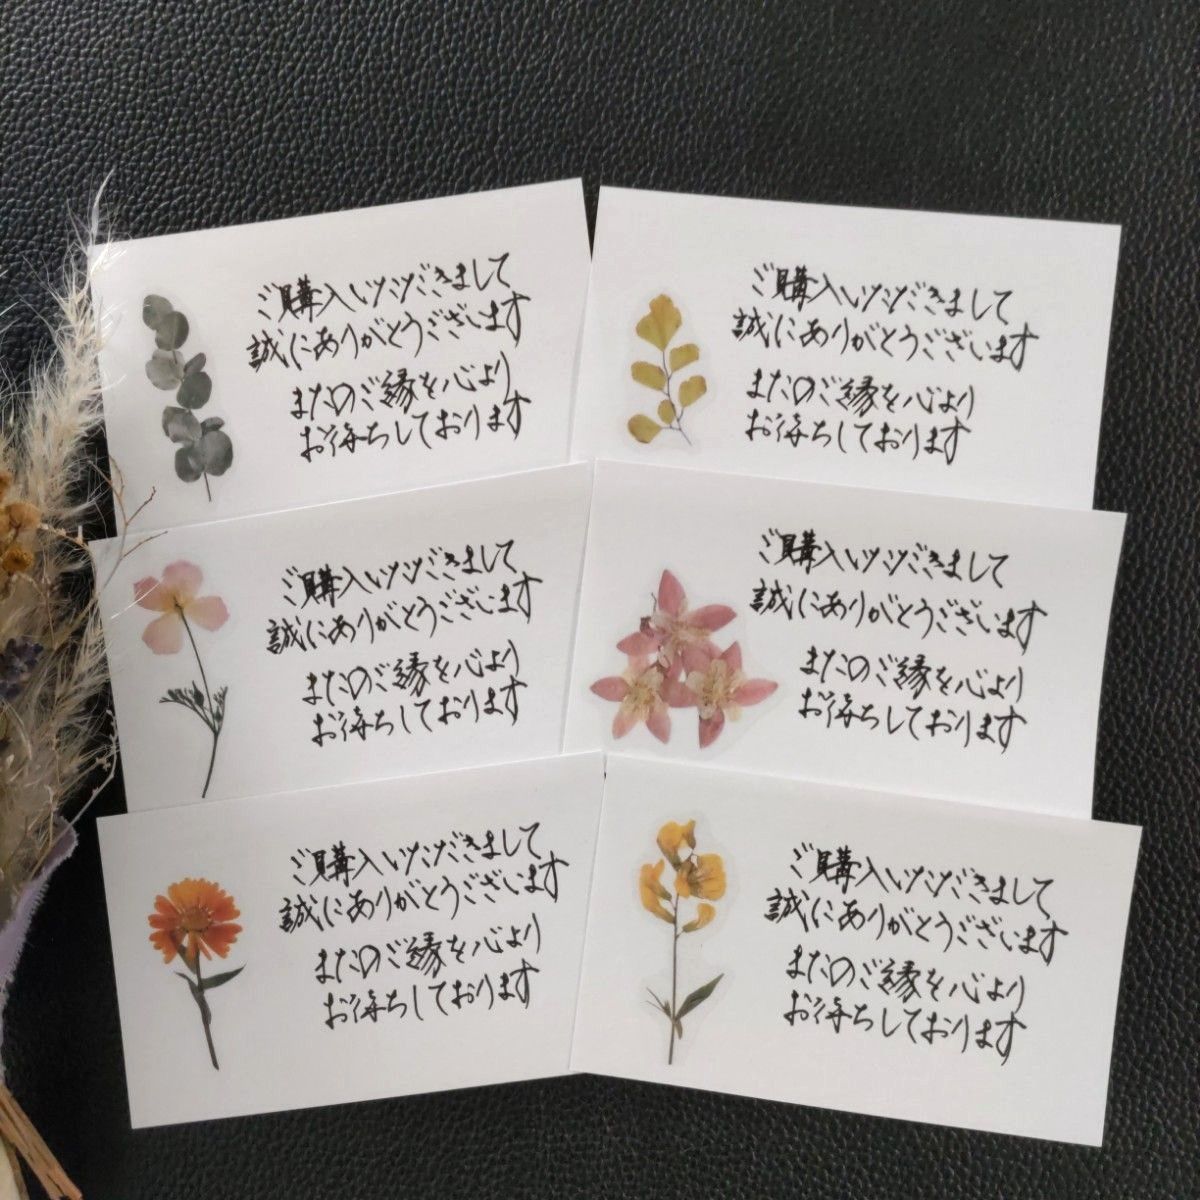 ご購入いただきまして
誠にありがとうございます
またのご縁を心より
お待ちしております
ご購入いただきまして
誠にありがとうございます
またのご縁を心より
お待ちしております
ご購入いただきまして
誠にありがとうございます
またのご縁を心より
お待ちしております
ご購入いただきまして
誠にありがとうございます
またのご縁を心より
お待ちしております
ご購入いただきまして
誠にありがとうございます
またのご縁を心より
お待ちしております
ご購入いただきまして
誠にありがとうございます
またのご縁を心より
お待ちしております